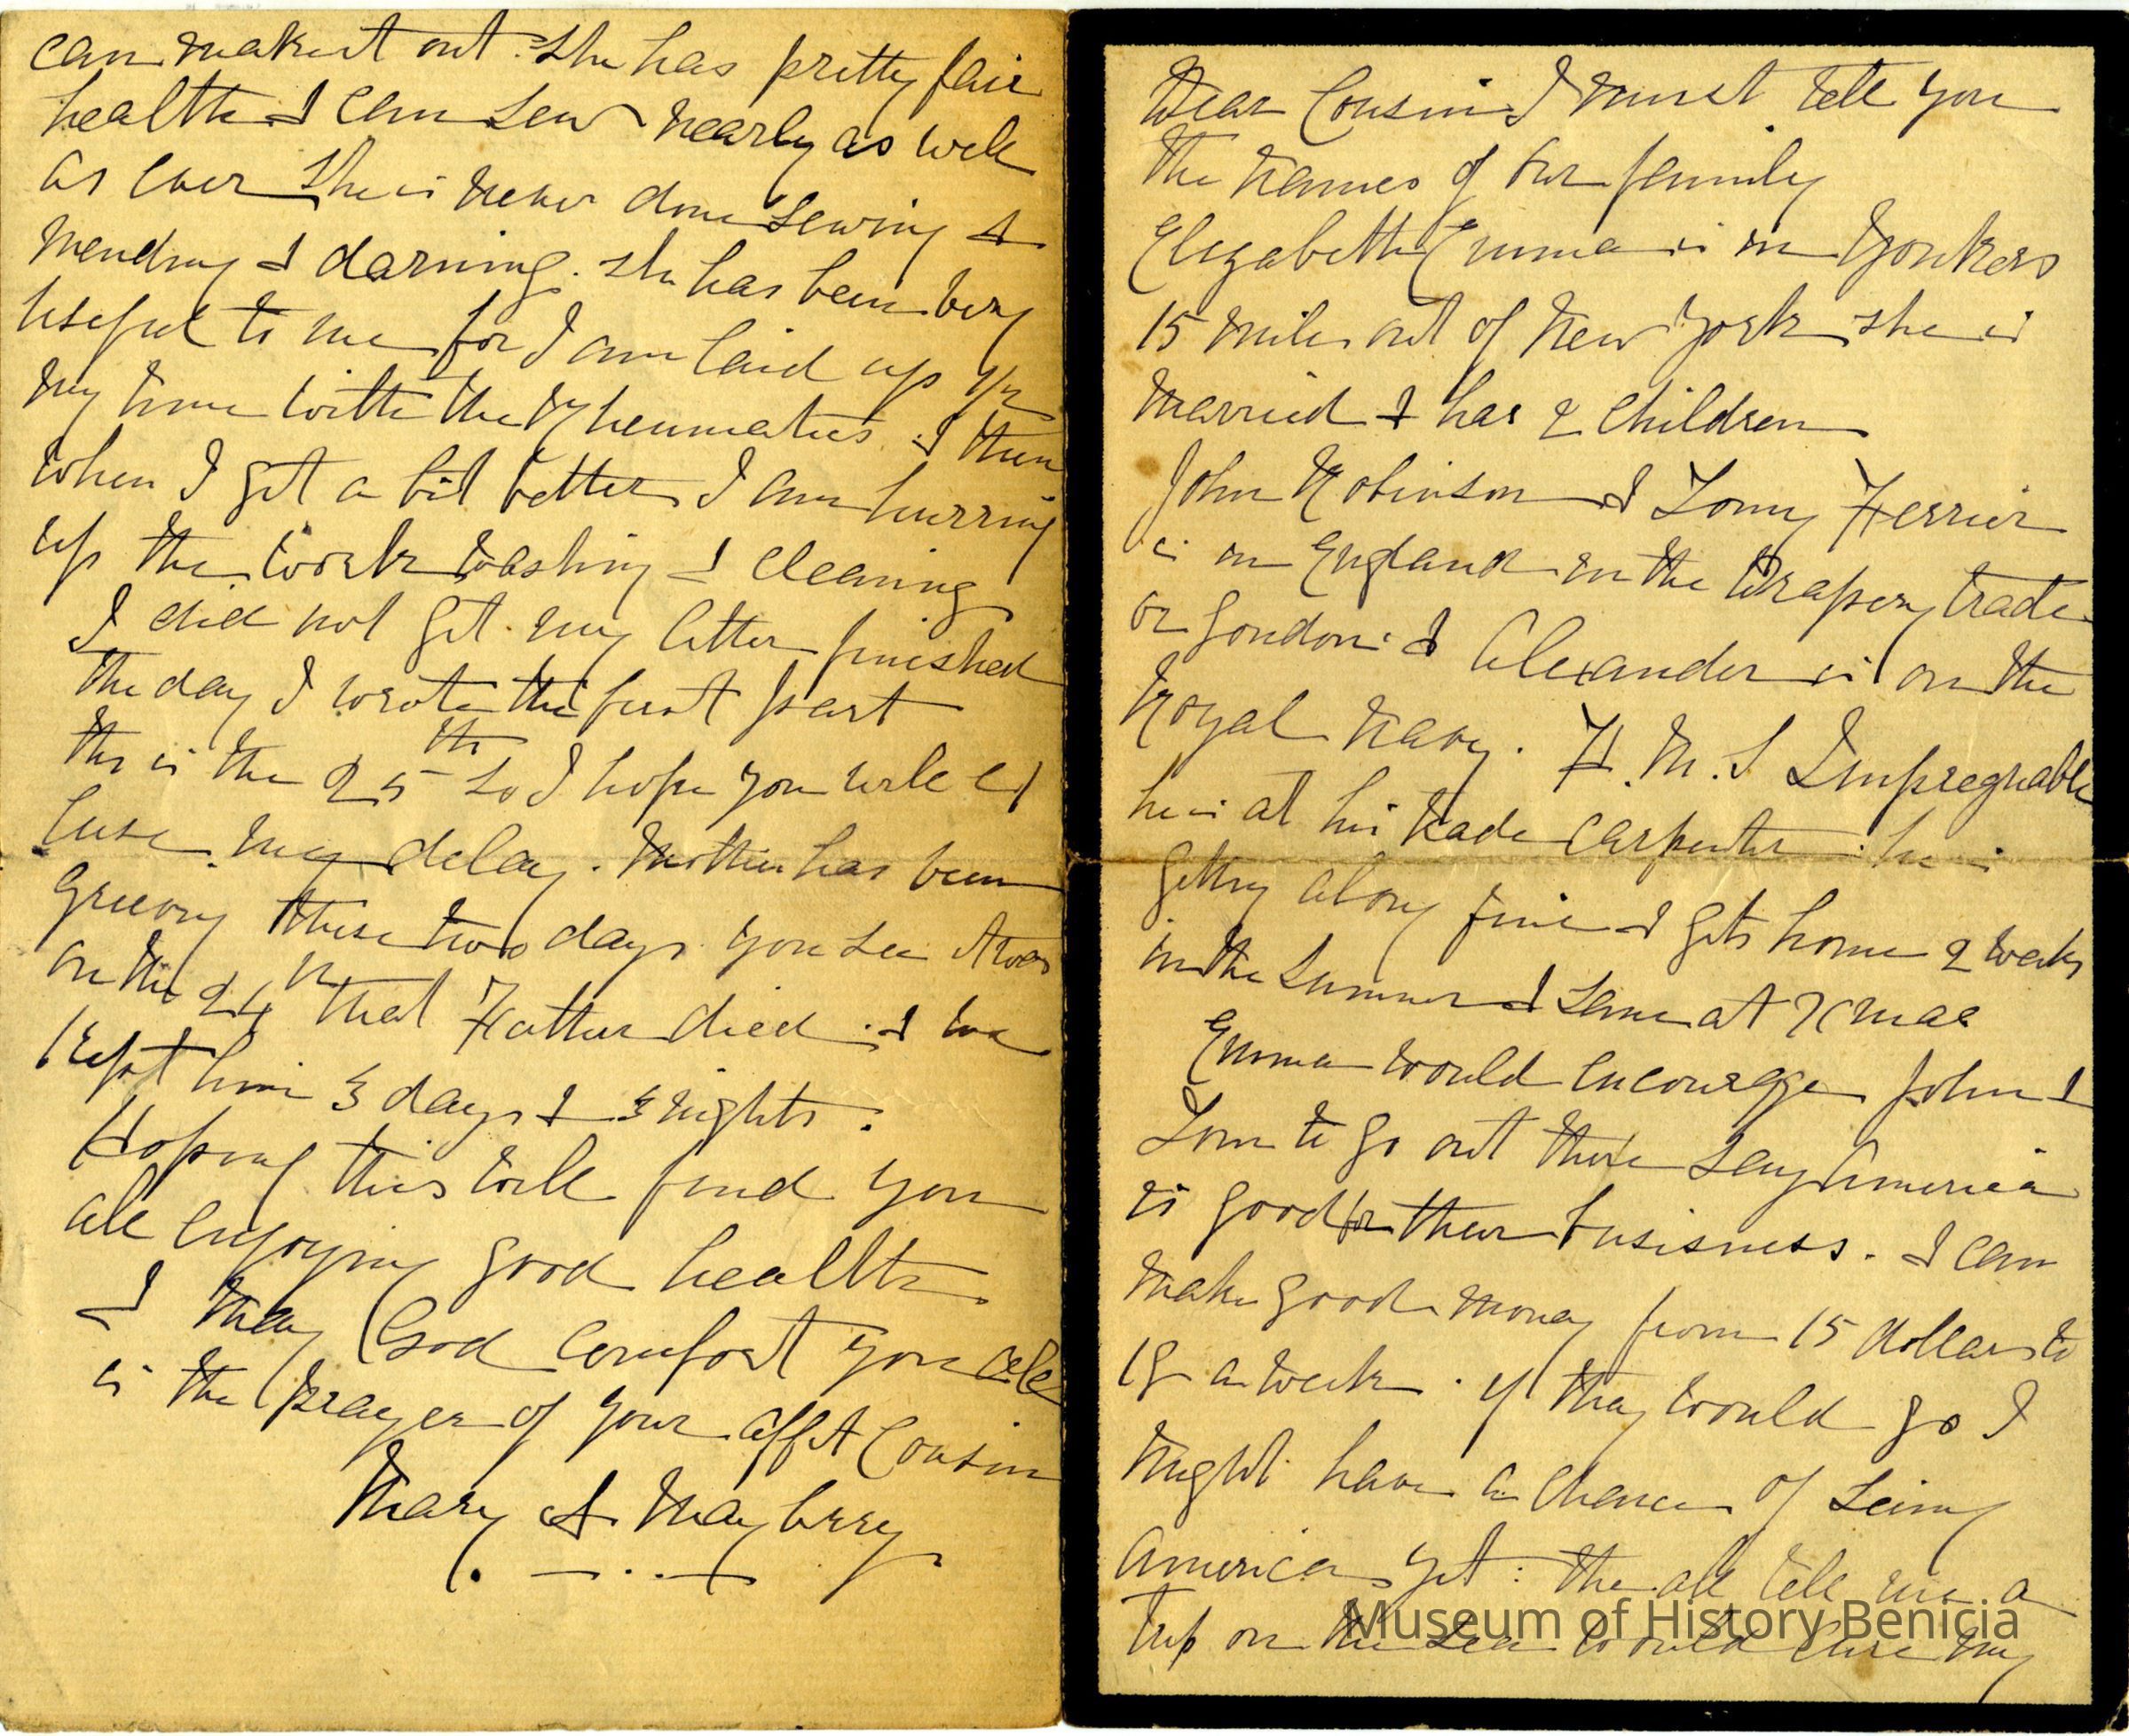 can make it out. She has pretty fair
health & can sew nearly as well
as ever She is never done sewing &
mending & darning. She has been very
useful to me for I am laid up 1/2
my time with the Rheumatics. & then
when I get a bit better I am hurring
up the work washing & cleaning
I did not get my letter finished
the day I wrote the first part
this is the 25th so I hope you will ex
cuse my delay. Mother has been
greeving these two days. you see it was
on the 24th that Father died. & we
kept him 3 days & 3 nights.
Hoping this will find you
all enjoying good health.
& May God comfort you all
is the prayer of your afft Cousin
Mary A Mayberry
Dear Cousin I must tell you
the names of our family
Elizabeth Emma is in Yonkers
15 miles out of New York she is
married & has 2 children
John Robinson & Tomy Ferrier
is in England in the Drapery trade
or London. & Alexander is on the
Royal Navy. H. M. S Impregnable
he is at his trade carpenter. he is
getting along fine & gets home 2 weeks
in the summer & same at Xmas
Emma would encourage John &
Tom to go out there say America
is good for their busisness. & can
make good money from 15 dollars to
18 a week. if they would go I
might have a chance of seeing
America yet: the all tell me a
trip on the sea would cure my
Museum of History Benicia